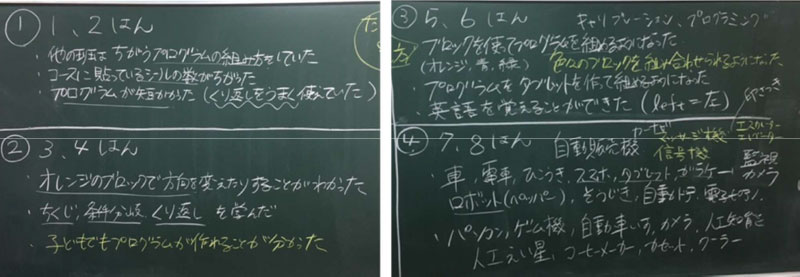 ① 1、2はん
・他の班はちがうプログラムの組み方をしていた
・コースに貼っているシールの数がちがった
・プログラムが短かかった(くり返しをうまく使っていた)
② 3、4はん
・オレンジのブロックで方向を変えたりすることがわかった
・ちくじ、条件分岐、くり返しを学んだ
・子どもでもプログラムが作れることが分かった
③ 5、6はん キャリブレーション、プログラミング
・ブロックを使ってプログラムを組めるようになった
(オレンジ、青、緑) 色々のブロックを組み合わせられるようになった
・プログラムをタブレットを使って組めるようになった
・英語を覚えることができた(left=左)
④ 7、8はん 自動販売機
信号機
監視カメラ
・車、電車、ひこうき、スマホ、タブレット、ガラケー
ロボット(ペッパー)、そうじき、自動ドア
・パソコン、ゲーム機、自動車いす、カメラ、人工知能
人工えい星、コーヒーメーカー、カセット、クーラー